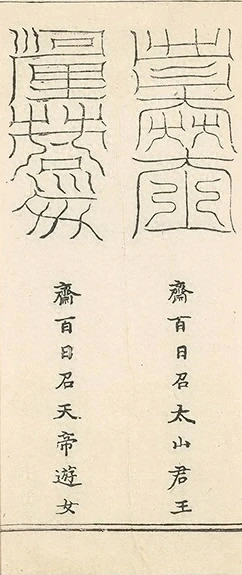 齋百日召太山君王
齋百日召天帝遊女